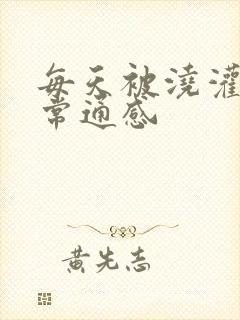 每天被浇灌
常通感
黄先志